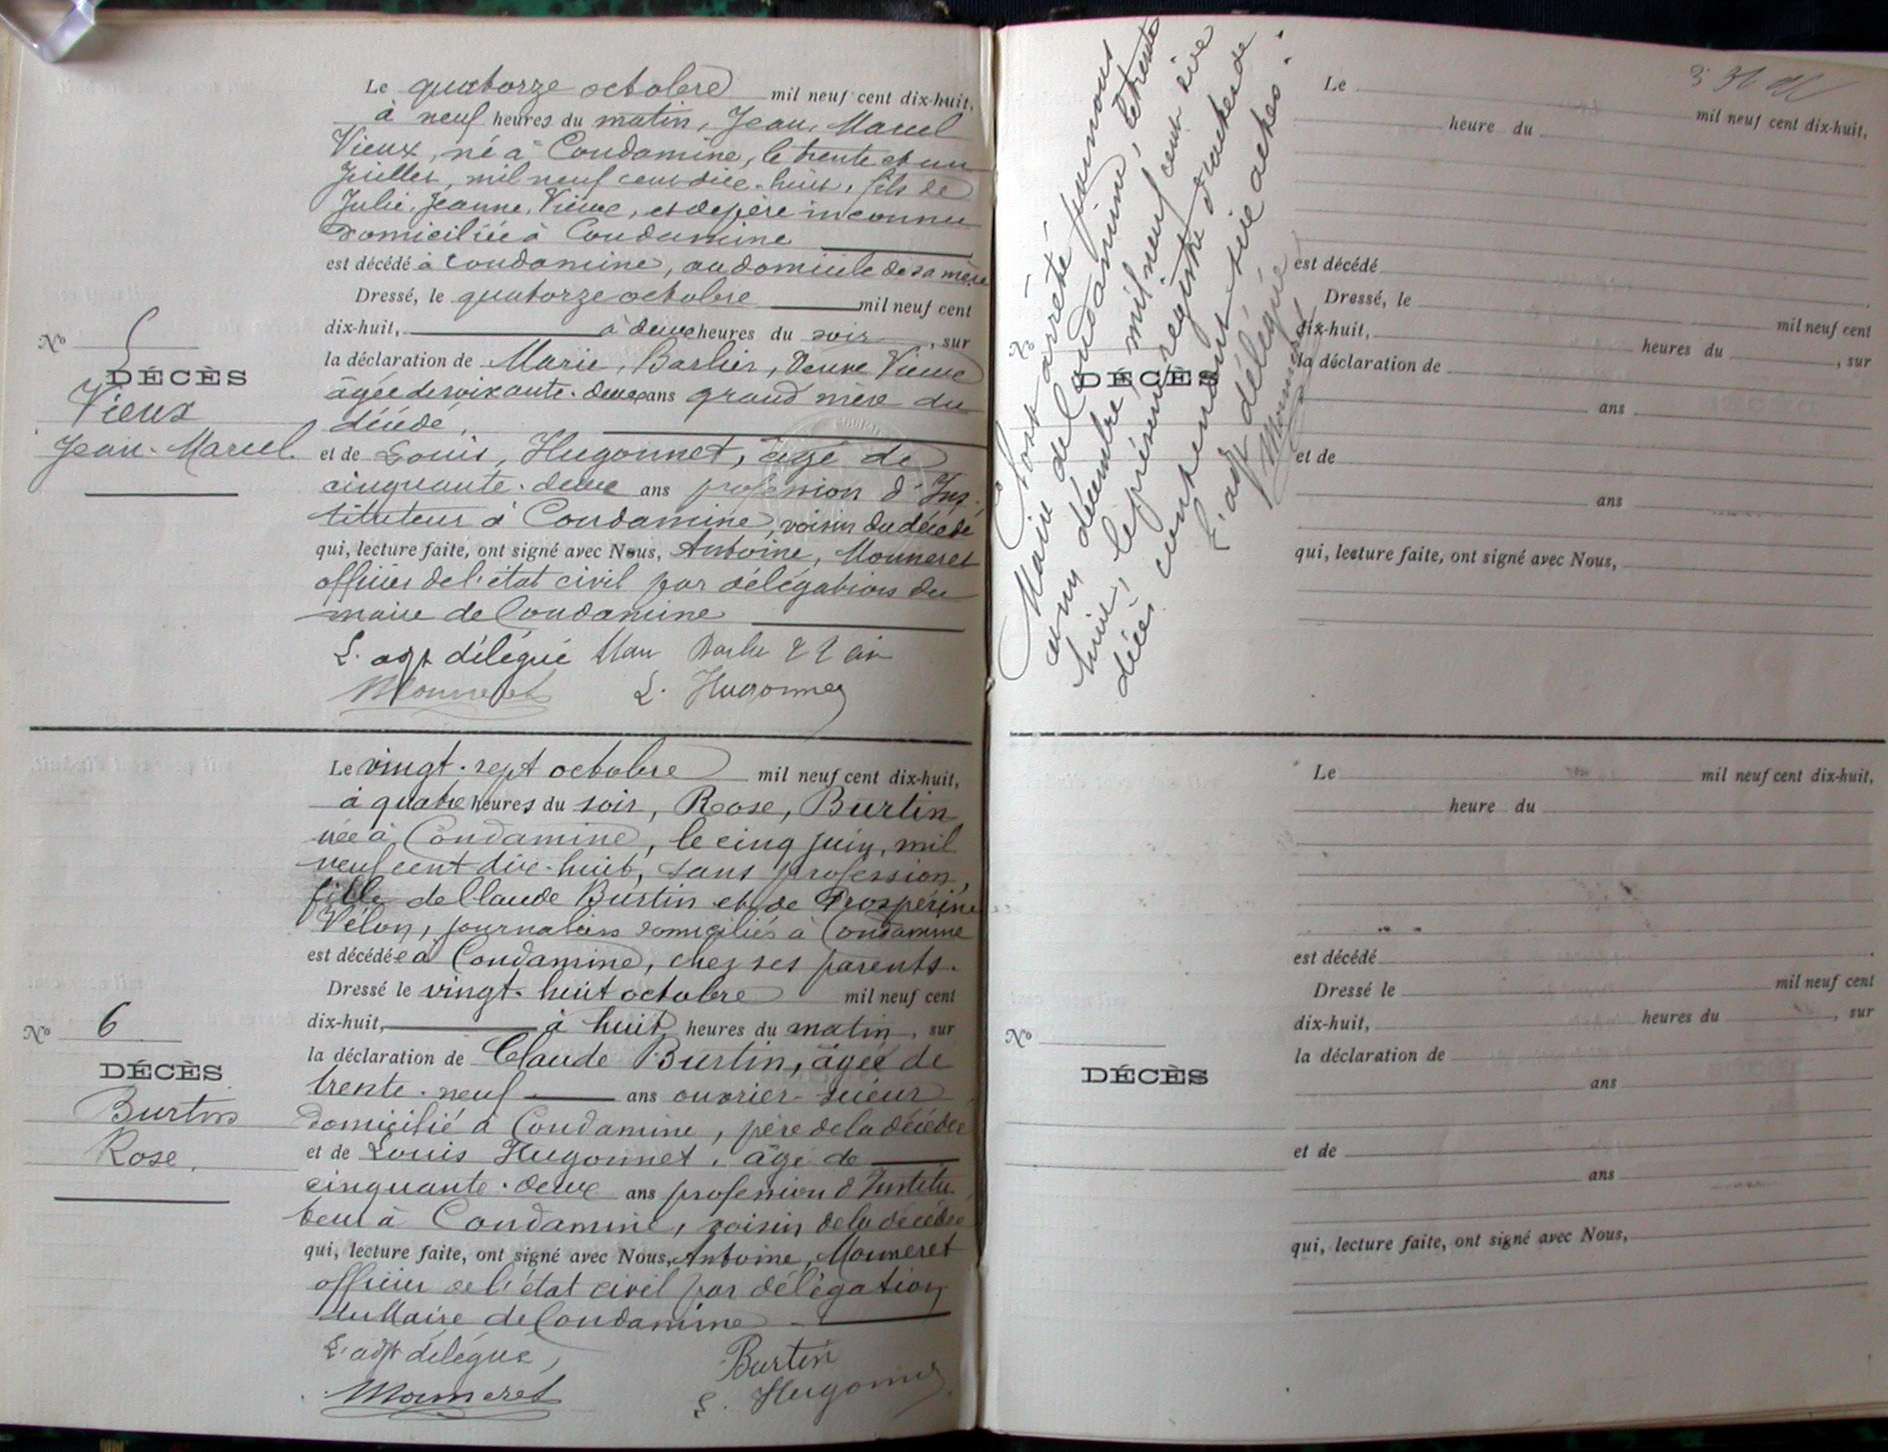 Le quatorze octobre mil neuf cent dix-huit,
à neuf heures du matin, Jean, Marcel
Vieux, né à Condamine, le trente et un
Juillet, mil neuf cent dix-huit, fils de
Julie, Jeanne, Vieux, et de père inconnu
domiciliée à Condamine
est décédé à Condamine, au domicile de sa mère
Dressé, le quatorze octobre mil neuf cent
dix-huit, à deux heures du soir, sur
la déclaration de Marie, Barbier, Veuve Vieux
âgée de soixante-deux ans grand'mère du
décédé,
et de Louis, Hugonnet, âgé de
cinquante-deux ans profession d'Ins-
tituteur à Condamine, voisin du décédé
qui, lecture faite, ont signé avec Nous, Antoine, Monneret
officier de l'état civil par délégation du
maire de Condamine
L. adjt délégué
Monneret L. Hugonnet
No 5
DÉCÈS
Vieux
Jean-Marcel
Le vingt-sept octobre mil neuf cent dix-huit,
à quatre heures du soir, Rose, Burtin
née à Condamine, le cinq juin, mil
neuf cent dix-huit, sans profession,
fille de Claude Burtin et de Prospérine
Vélon, journaliers domiciliés à Condamine
est décédée à Condamine, chez ses parents.
Dressé le vingt-huit octobre mil neuf cent
dix-huit, à huit heures du matin, sur
la déclaration de Claude Burtin, âgé de
trente-neuf ans ouvrier-scieur
domicilié à Condamine, père de la décédée
et de Louis Hugonnet, âgé de
cinquante-deux ans profession d'Institu-
teur à Condamine, voisin de la décédée
qui, lecture faite, ont signé avec Nous, Antoine, Monneret
officier de l'état civil par délégation
du Maire de Condamine
L'adjt délégué,
Burtin
Monneret L. Hugonnet
No 6
DÉCÈS
Burtin
Rose.
Clos et arrêté par nous
Maire de Condamine, le trente
et un décembre, mil neuf cent dix
huit, le présent registre d'actes de
décès contenant six actes.
L'adjt délégué
Monneret
Le mil neuf cent dix-huit,
heure du
est décédé
Dressé, le mil neuf cent
dix-huit, heures du , sur
la déclaration de
ans
et de
ans
qui, lecture faite, ont signé avec Nous,
No
DÉCÈS
Le mil neuf cent dix-huit,
heure du
est décédé
Dressé le mil neuf cent
dix-huit, heures du , sur
la déclaration de
ans
et de
ans
qui, lecture faite, ont signé avec Nous,
No
DÉCÈS